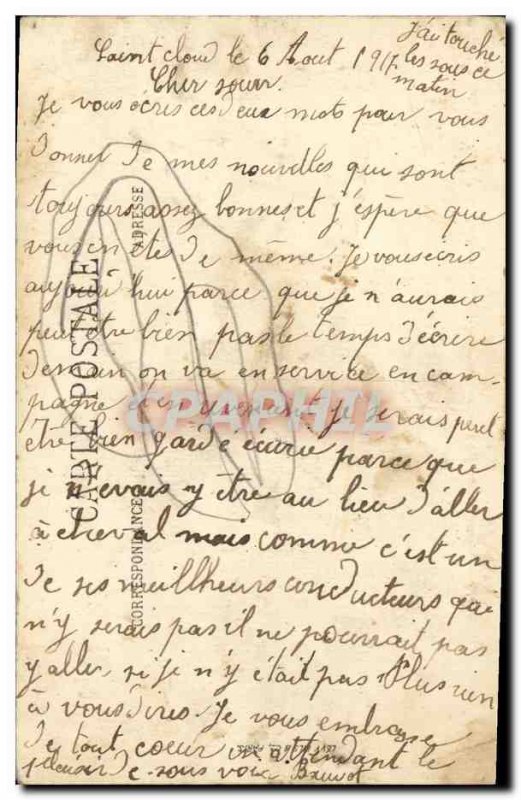 J'ai touché
les sous ce
matin
Saint cloud le 6 Aout 1917
Cher soeur.
Je vous écris ces deux mots pour vous
donner de mes nouvelles qui sont
toujours assez bonnes et j'éspère que
vous en ete de même. Je vous écris
aujourd'hui parce que je n'aurais
peut être bien pas le temps d'écrire
demain on va en service en cam-
pagne et en revenant je serais peut
être bien garde écurie parce que
je devais y être au lieu d'aller
à cheval mais comme c'est un
de ses meilheurs conducteurs que
n'y serais pas il ne pourrait pas
y aller, si je n'y était pas. Plus rien
à vous dires. Je vous embrasse
de tout coeur en attendant le
plaisir de vous voir
CARTE POSTALE
CORRESPONDENCE
ADRESSE
CPAPHIL